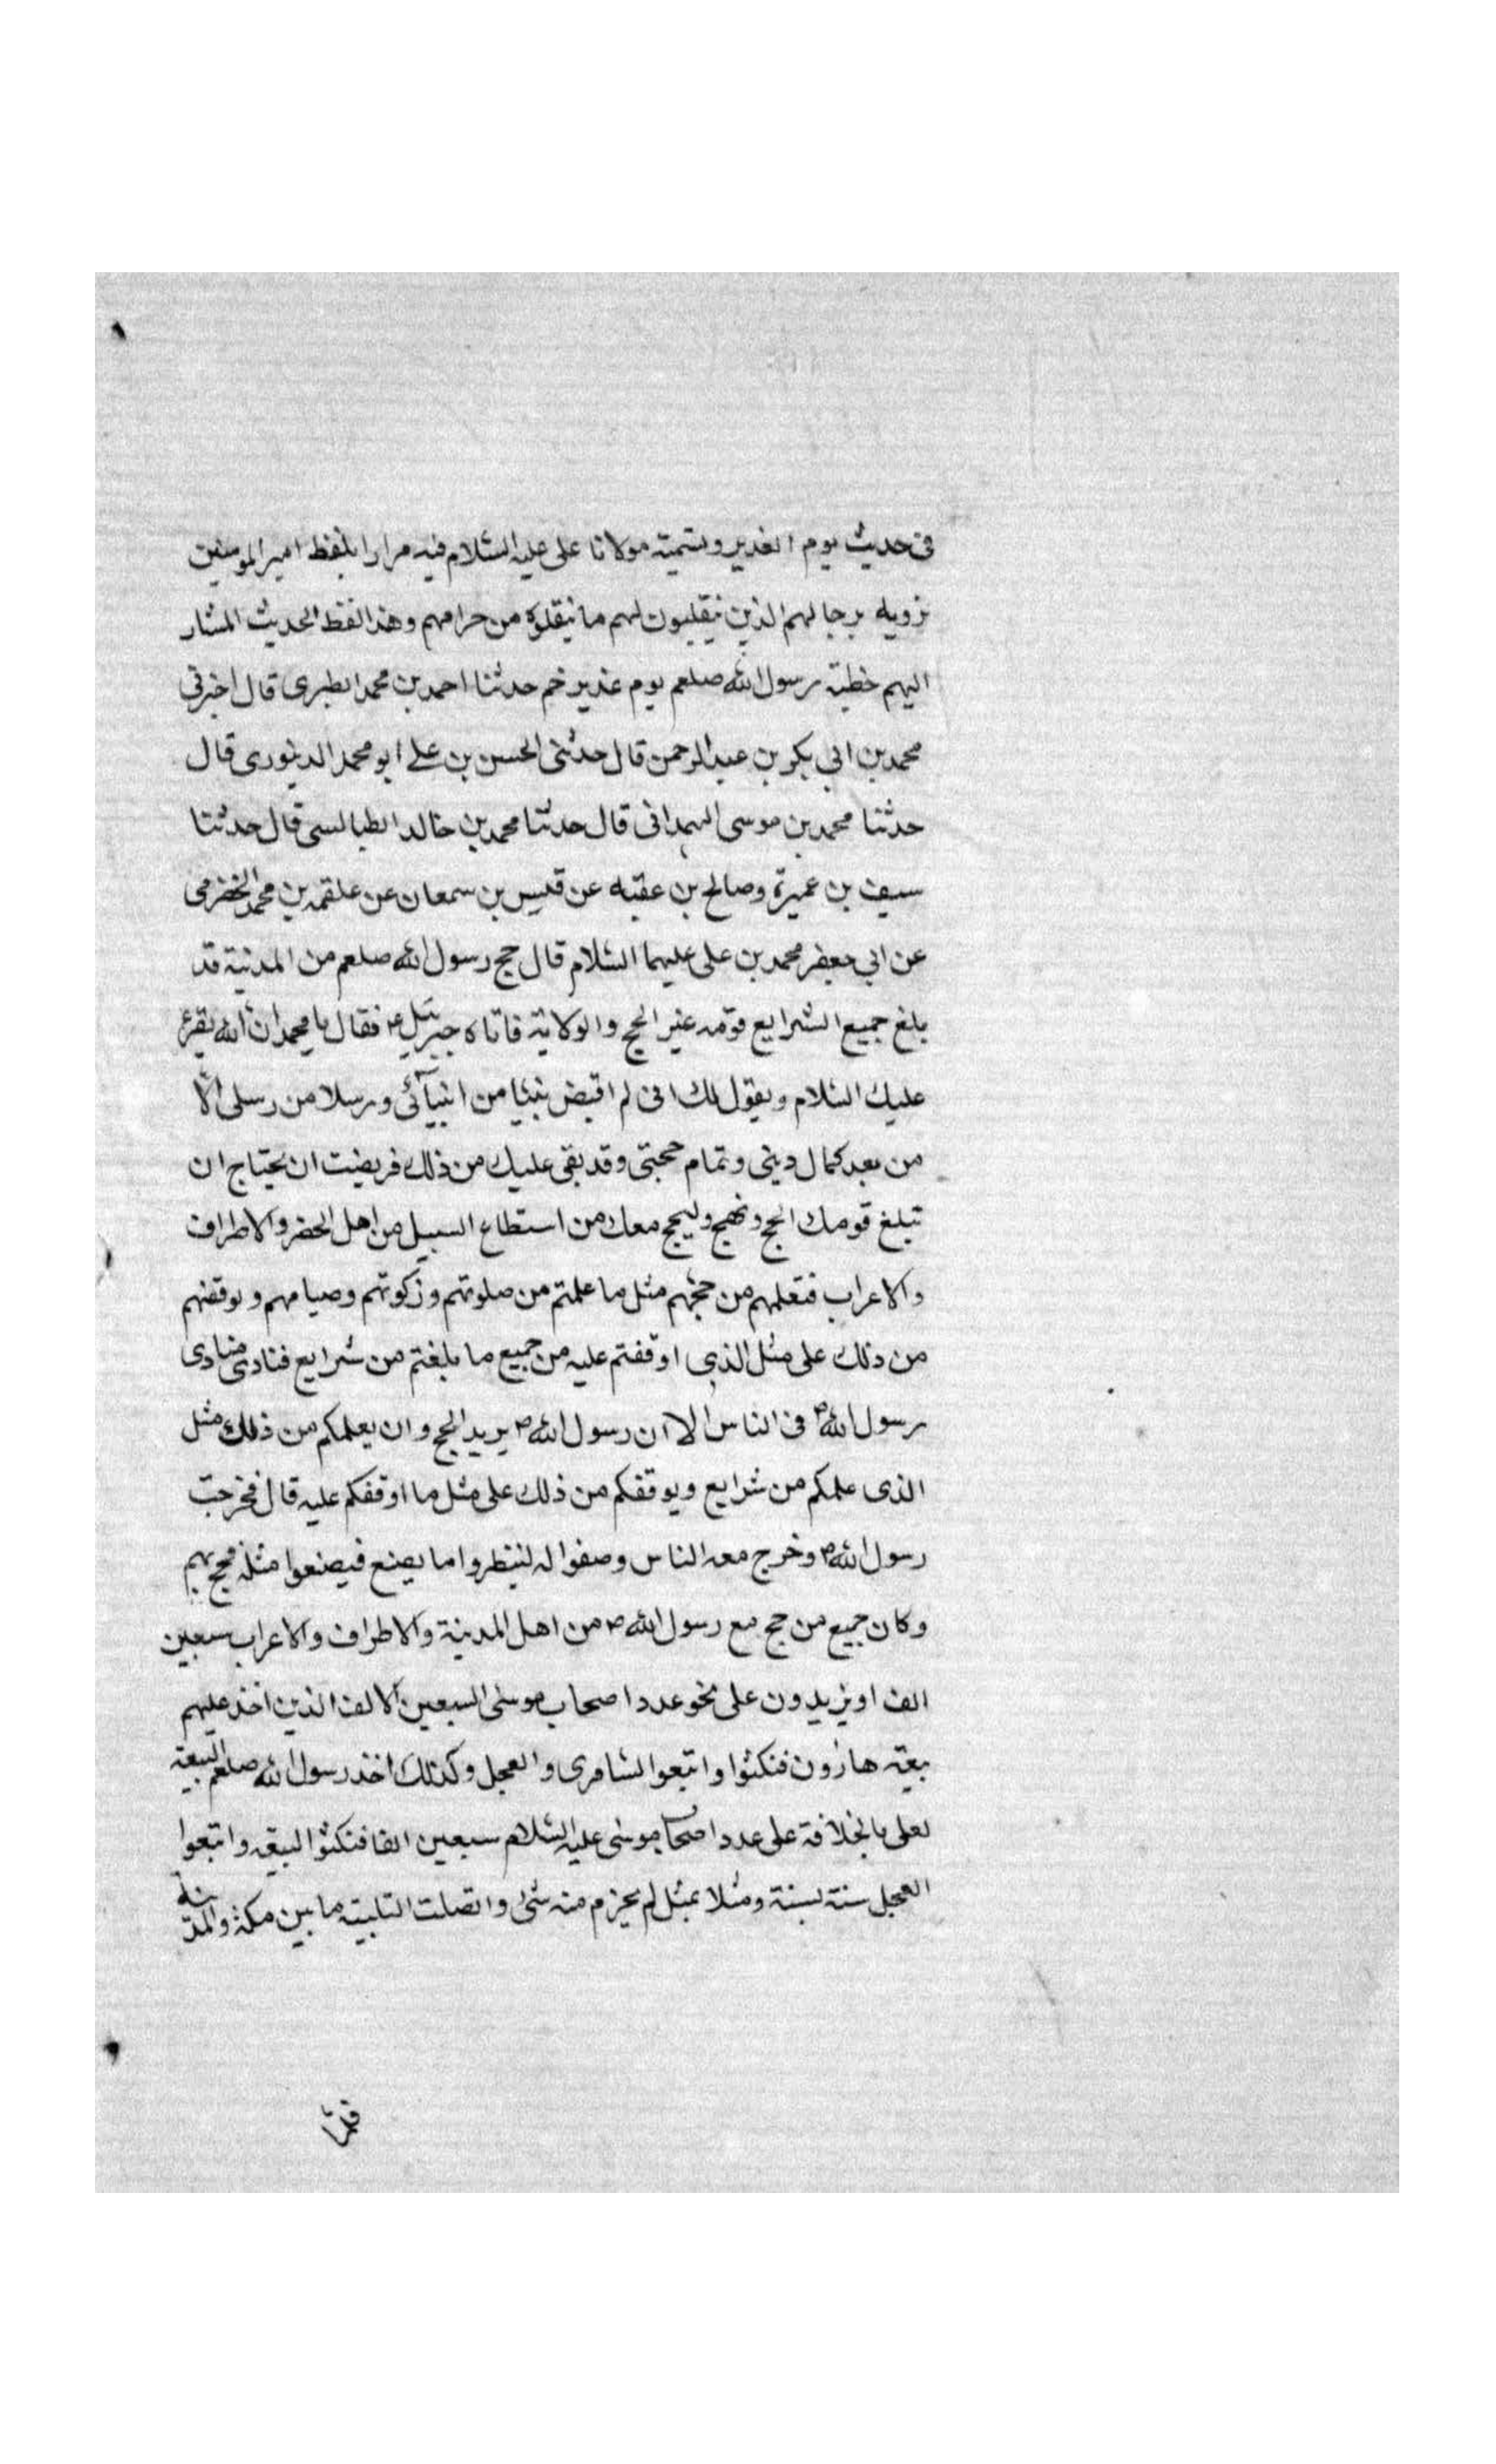 فى حديث يوم الغدير وتسميته مولانا على عليه السلام فيه مرارا بلفظ امير المومنين
نرويه برجالهم الذين ينقلبون لهم ما ينقلوه من حرامهم وهذا لفظ الحديث المشار
اليهم خطبة رسول الله صلعم يوم غدير خم حدثنا احمد بن محمد الطبرى قال اخبرنى
محمد بن ابى بكر بن عبد الرحمن قال حدثنى الحسن بن على ابو محمد الدينورى قال
حدثنا محمد بن موسى الهمدانى قال حدثنا محمد بن خالد الطيالسى قال حدثنا
سيف بن عميرة وصالح بن عقبه عن قيس بن سمعان عن علقمه بن محمد الحضرمى
عن ابى جعفر محمد بن على عليهما السلام قال حج رسول الله صلعم من المدينة قد
بلغ جميع الشرايع قومه غير الحج والولاية فاتاه جبرئيل ع فقال يا محمد ان الله يقرئ
عليك السلام ويقول لك انى لم اقبض نبيا من انبيآئى ورسلا من رسلى الا
من بعد كمال دينى وتمام حجتى وقد بقى عليك من ذلك فريضت ان يحتاج ان
تبلغ قومك الحج ونهج وليحج معك من استطاع السبيل من اهل الحضر والاطراف
والاعراب فتعلمهم من حجهم مثل ما علمتم من صلوتهم وزكوتهم وصيامهم وتوقفهم
من ذلك على مثل الذى اوقفتم عليه من جميع ما بلغتم من شرايع فنادى منادى
رسول الله ص فى الناس الا ان رسول الله ص يريد الحج وان يعلمكم من ذلك مثل
الذى علمكم من شرايع ويوقفكم من ذلك على مثل ما اوقفكم عليه قال فخرجت
رسول الله ص وخرج معه الناس وصفوا له لينظروا ما يصنع فيصنعوا مثله فحج بهم
وكان جميع من حج مع رسول الله ص من اهل المدينة والاطراف والاعراب سبعين
الف او يزيدون على نحو عدد اصحاب موسى السبعين الالف الذين اخذ عليهم
بيعة هارون فنكثوا واتبعوا السامرى والعجل وكذلك اخذ رسول الله صلعم البيعة
لعلى بالخلافة على عدد اصحاب موسى عليه السلام سبعين الفا فنكثوا البيعه واتبعوا
العجل سنة بسنة ومثلا بمثل لم يخرم منه شئ واتصلت التلبيته ما بين مكة والمدينة